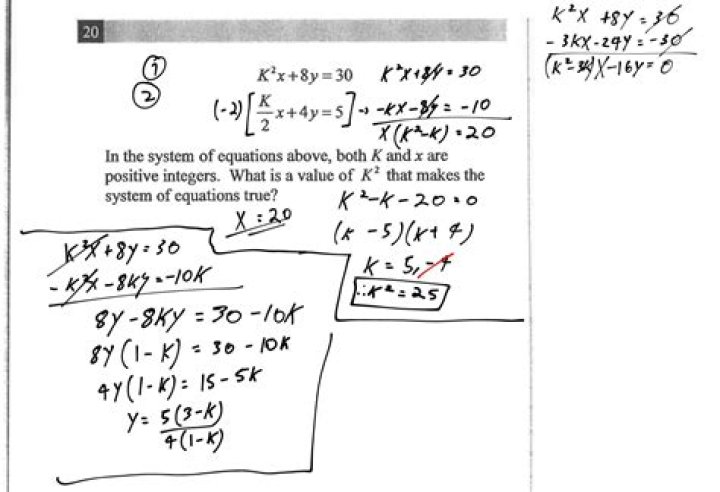 20
① K²x+8y=30 K²X+8Y=30
② (-2)[K/2 x+4y=5] → -KX-8Y=-10
X(K²-K)=20
In the system of equations above, both K and x are
positive integers. What is a value of K² that makes the
system of equations true?
K²-K-20=0
X=20
(K-5)(K+4)
K=5,-4
∴K²=25
K²X+8Y=30
-K²X-8KY=-10K
8Y-8KY=30-10K
8Y(1-K)=30-10K
4Y(1-K)=15-5K
Y=5(3-K)/4(1-K)
K²X+8Y=30
-3KX-24Y=-30
(K²-3K)X-16Y=0